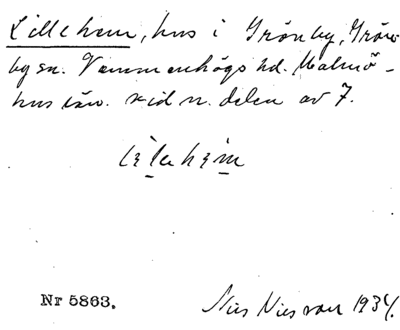 Lillehem, hus i Grönby, Grön-
by sn. Vemmenhögs hd. Malmö-
hus län. vid n. delen av 7.
Nr 5863.
Nils Nilsson 1934.